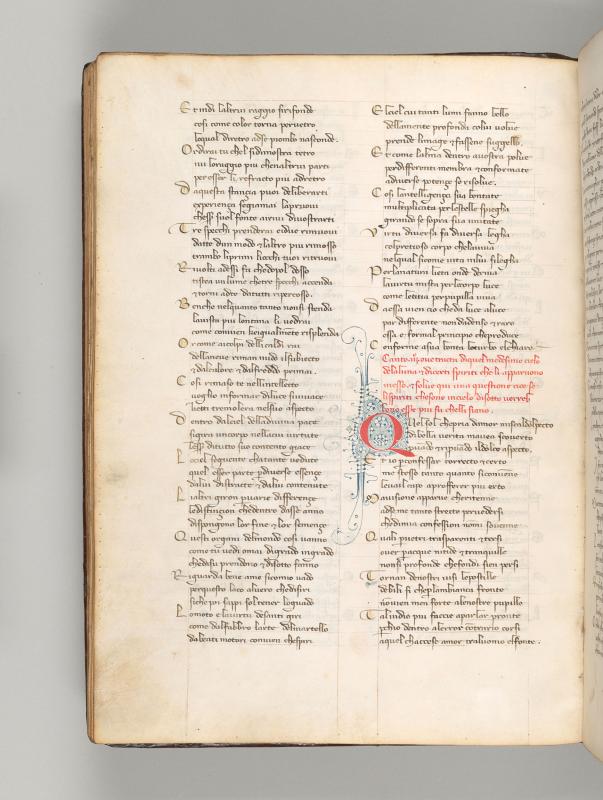 Et indi laltrui raggio si rifonde
cosi come color torna per vetro
loqual diretro ad se piombo nasconde.
Or dirai tu chel si dimostra tetro
iui loraggio piu chenaltrui parti
per esser li refracto piu adretro
Da questa stança puoi deliberarti
experiença segiamai lapruoui
chesser suol fonte airiui diuostrarti
Tre specchi prenderai eidue rimuoui
da te dun modo & laltro piu rimosso
trambo liprimi liocchi tuoi ritruoui
Riuolto adessi fa chedopol dosso
tistea unlume chetre specchi accenda
& torni adte datutti ripercosso.
Benche nelquanto tanto nonsi stenda
lauista piu lontana li uedrai
come conuien keigualmente risplenda
Or come aicolpi delli caldi rai
dellaneue riman nudo ilsubiecto
& dalcolore & dalfreddo primai.
Cosi rimaso te nellintellecto
voglio informar diluce siuiuace
cheti tremolera nelsuo aspecto
Dentro dalciel delladiuina pace
sigira uncorpo nellacui virtute
lesser ditutto suo contento giace
Lociel sequente chatante vedute
quel esser parte pdiuerse essençe
dallui distincte & dallui contenute
Laltri giron puarie differençe
ledistinçion chedentro dasse anno
dispongono lor fine & lor semençe
Questi organi delmondo cosi vanno
come tu vedi omai digrado ingrado
chedisu prendono & disotto fanno
Riguarda bene amo sicomio vado
perquesto loco aluero chedisiri
siche poi sappi sol tener loguado
Lo moto e lauirtu desanti giri
come dalfabbro larte delmartello
dabeati motori conuien chespiri
El ciel cui tanti lumi fanno bello
dellamente profonda chelui volue
prende limage & fassene suggello
Et come lalma dentro auostra polue
perdifferenti membra & conformate
adiuerse potençe si risolue.
Cosi lantelligença sua bontate
multiplicata perlestelle spiegha
girando se sopra sua unitate
Virtu diuersa fa diuersa legha
colpretioso corpo chelauiua
nelqual sicome vita inuui silegha
Perlanatura lieta onde deriua
lauirtu mista perlocorpo luce
come letitia perpupilla uiua
Daessa vien cio cheda luce aluce
par differente nondadenso & raro
essa e formal principio cheproduce
Conforme asua bonta loturbo elchiaro
Canto .iii. oue tracta diquel medesimo cielo
della luna & dicerti spiriti che li appariuono
messo & solue qui una questione cioe se
lispiriti chesono incielo disotto vorreb
bono esser piu su chelli siano.
Quel sol chepria damor miscaldolpecto
dibella verita mauea scouerto
prouando & riprouando ildolce aspecto.
Et io perconfessar correcto & certo
me stesso tanto quanto siconuiene
leuail capo aprofferer piu erto
Mauisione apparue cheritenne
adse me tanto stretto peruedersi
chedimia confession nomi souenne
Quali puetri trasparenti & tersi
over pacque nitide & tranquille
nonsi profonde chefondi sien persi
Tornan denostri uisi lepostille
debili si cheperlainbianca fronte
nonuien men forte alenostre pupille
Taliuidio piu faccie aparlar pronte
perchio dentro alerror contrario corsi
aquel chaccese amor tralomo elfonte.